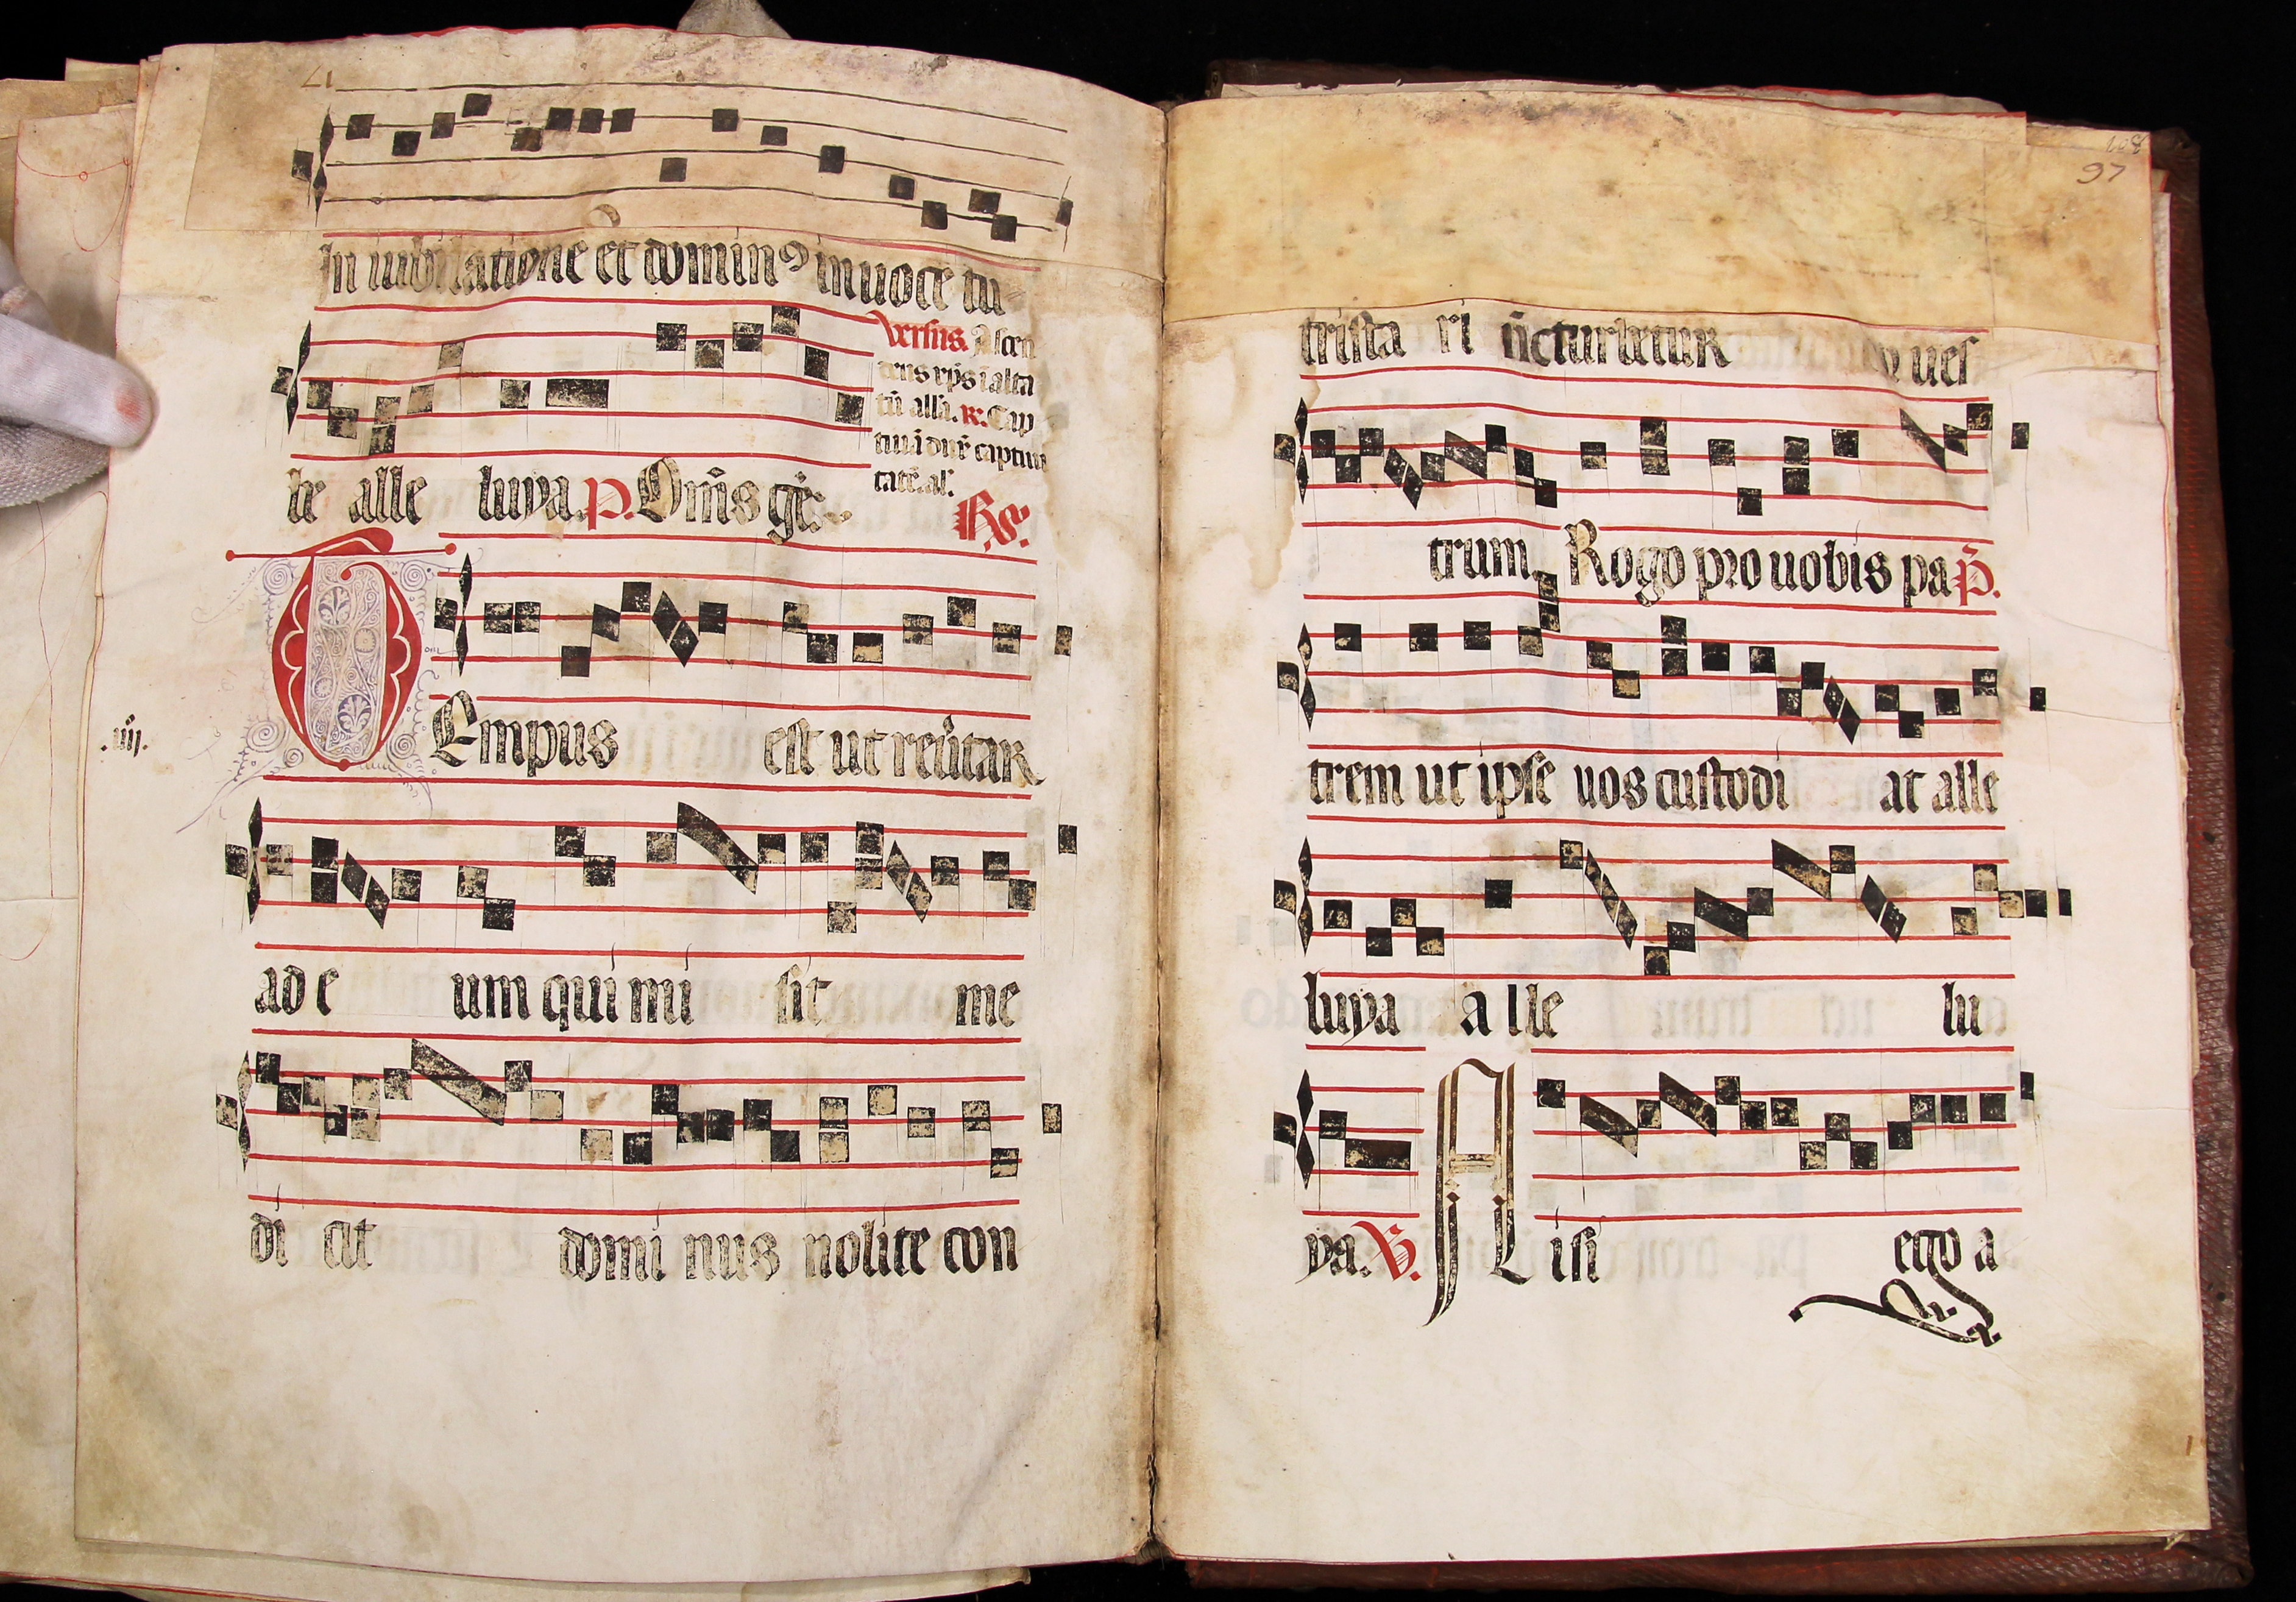 In iubilatione et dominꝰ in uoce tu
Versus. Ascen
dens xp̄s ī alta
tū alla. R. Cap
tiuā dux̄ captiui
tatē. al.
be alle luya. P. Om̄s gē.
R̄.
TEmpus est ut reu̇tar
.iiij.
ad e um qui mi sit me
di cit domi nus nolite con
97
trista ri n̄cturbetur ues
trum Rogo pro uobis pa P̄.
trem ut ipse uos custodi at alle
luya a lle lu
ya. V. NIsi ego a